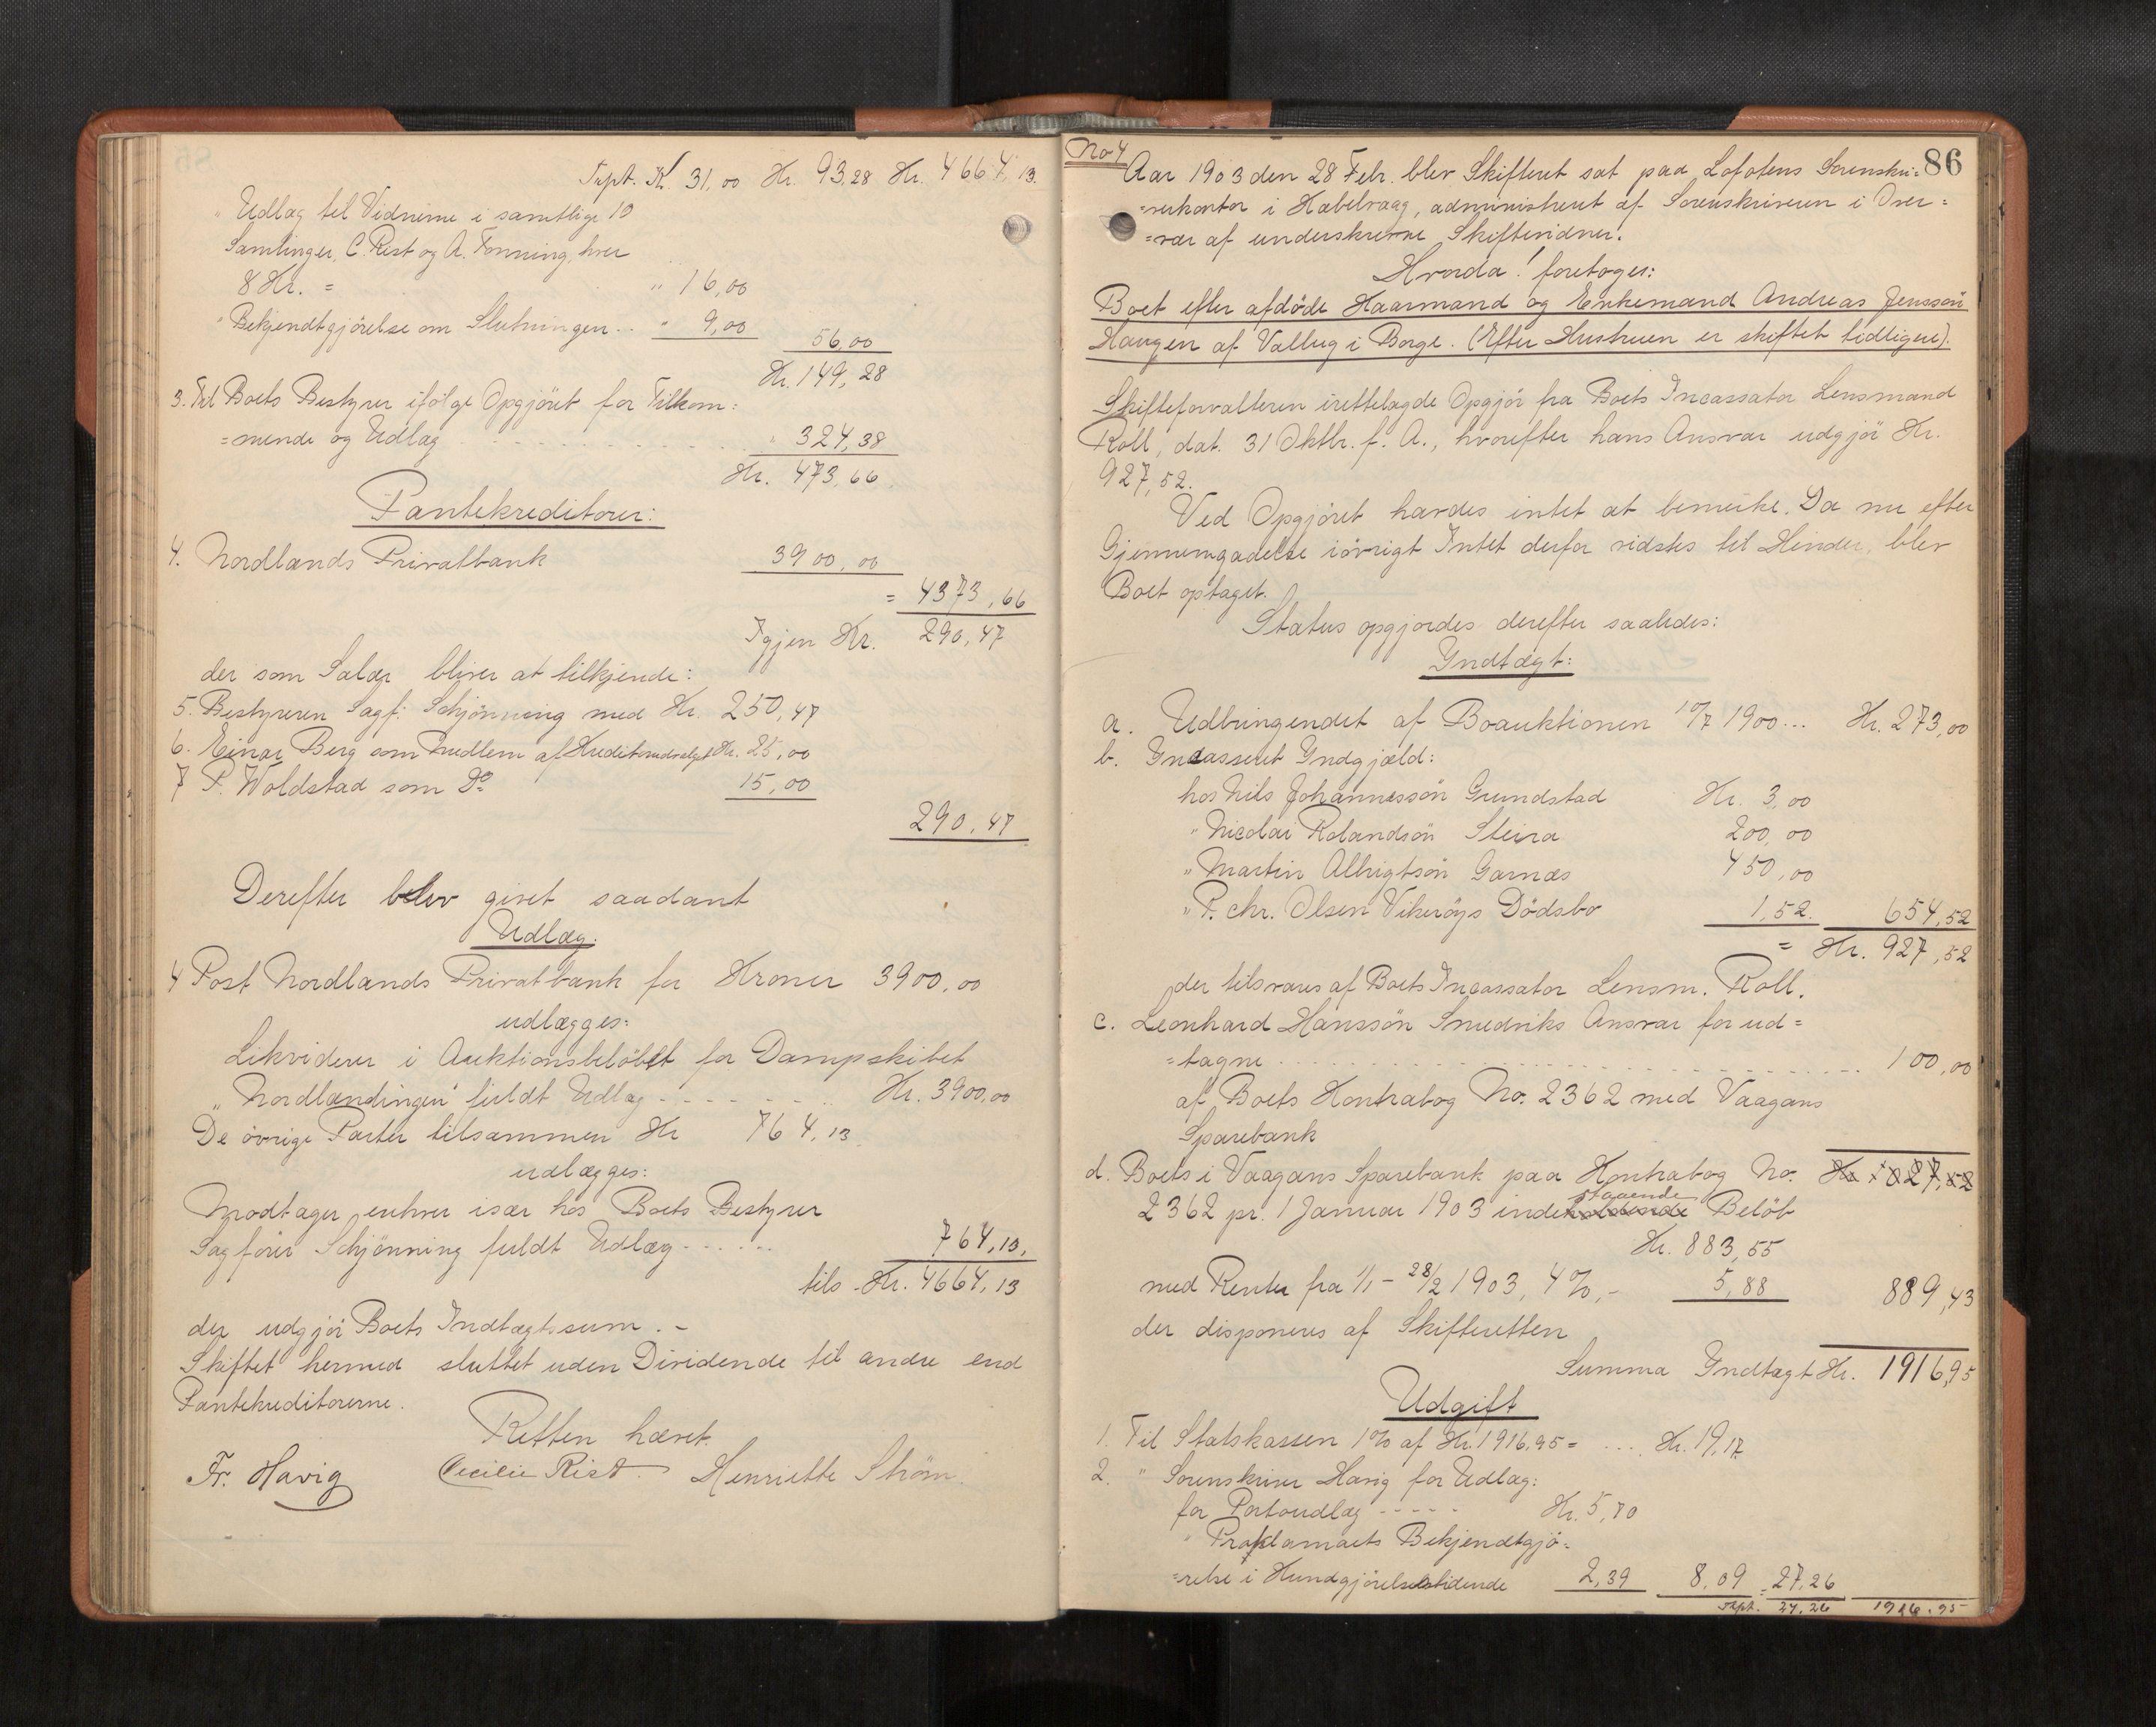 Trspt. Kr. 31,00 Kr. 93,28 Kr. 4664,13.
" Udlæg til Vidnerne i samtlige 10
Samlinger, C. Rist og A. Fonning, hver
8 Kr. = " 16,00
" Bekjendtgjörelse om Slutningen .. " 9,00 56,00
Kr. 149,28
3. Til Boets Bestyrer ifölge Opgjöret for Tilkom=
=mende og Udlæg " 324,38
Kr. 473,66
Pantekreditorer:
4. Nordlands Privatbank 3900,00
= 4373,66
Igjen Kr. 290,47
der som Salær bliver at tilkjende:
5. Bestyreren Sagf. Schjönning med Kr. 250,47
6. Einar Berg som Medlem af Kreditorudvalget Kr. 25,00
7 P. Woldstad som Do 15,00
290,47
Derefter blev givet saadant
Udlæg.
4 Post Nordlands Privatbank for Kroner 3900,00
udlægges:
Likviderer i Auktionsbelöbet for Dampskibet
"Nordlændingen" fuldt Udlæg - - - - Kr. 3900,00
De övrige Poster tilsammen Kr 764,13
udlægges:
Modtager enhver især hos Boets Bestyrer
Sagförer Schjönning fuldt Udlæg - - - - 764,13,
tils. Kr. 4664,13
der udgjör Boets Indtægtssum. -
Skiftet hermed sluttet uden Dividende til andre end
Pantekreditorerne.
Retten hævet.
Fr. Havig Cecilie Rist. Henriette Ström.
No 4
86
Aar 1903 den 28 Febr. blev Skifteret sat paa Lofotens Sorenskri=
=verkontor i Kabelvaag, administreret af Sorenskriveren i Over=
=vær af underskrevne Skiftevidner.
Hvorda! foretoges:
Boet efter afdöde Gaarmand og Enkemand Andreas Jenssön
Haugen af Vallug i Borge. (Efter Hustruen er skiftet tidligere).
Skifteforvalteren irettelagde Opgjör fra Boets Incassator Lensmand
Roll, dat. 31 Oktbr. f. A., hvorefter hans Ansvar udgjör Kr.
927,52.
Ved Opgjöret havdes intet at bemerke. Da nu efter
Gjennemgaaelse iövrigt Intet derfor vidstes til Hinder, blev
Boet optaget.
Status opgjordes derefter saaledes:
Indtægt:
a. Udbringendet af Boauktionen 10/7 1900... Kr. 273,00
b. Incasseret Indgjæld:
hos Nils Johannessön Grundstad Kr. 3,00
" Nicolai Rolandsön Steira 200,00
" Martin Albrigtsön Garnæs 450,00
" P. Chr. Olsen Vikeröys Dödsbo 1,52. 654,52
= Kr. 927,52
der tilsvares af Boets Incassator Lensm. Roll.
c. Leonhard Hanssön Smedviks Ansvar for ud=
=tagne .......... 100,00
af Boets Kontrabog No. 2362 med Vaagans
Sparebank
Kr 1027,52
d. Boets i Vaagans Sparebank paa Kontrabog No.
2362 pr. 1 Januar 1903 indeholdende staaende Belöb
Kr. 883,55
med Renter fra 1/1 - 28/2 1903, 4%, - 5,88 889,43
der disponeres af Skifteretten
Summa Indtægt Kr. 1916,95
Udgift
1. Til Statskassen 1% af Kr. 1916,95 = .... Kr. 19,17
2. " Sorenskriver Havig for Udlæg:
for Portoudlæg ----- Kr. 5,70
" Proklamaets Bekjendtgjö=
=relse i Kundgjörelsestidende 2,39 8,09 = 27,26
Trspt. 27,26 1916,95